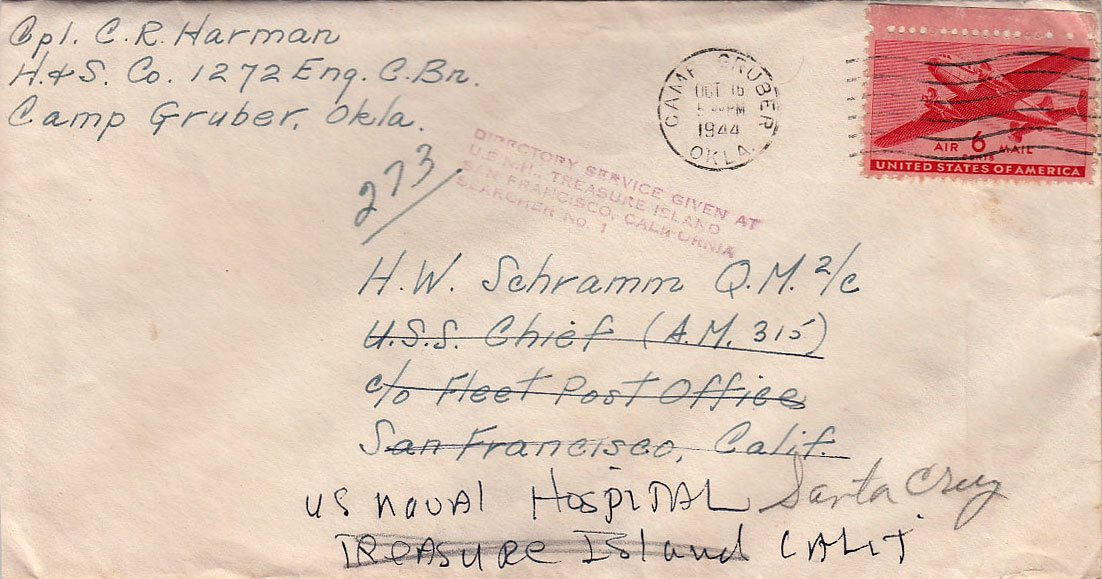 Cpl. C.R. Harman
H.&S. Co. 1272 Eng. C. Bn.
Camp Gruber, Okla.
CAMP GRUBER
OCT 16
PM
1944
OKLA.
AIR 6 MAIL
CENTS
UNITED STATES OF AMERICA
273
DIRECTORY SERVICE GIVEN AT
U.S.N.H. TREASURE ISLAND
SAN FRANCISCO, CALIFORNIA
SEARCHER No. 1
H.W. Schramm Q.M. 2/c
U.S.S. Chief (A.M. 315)
c/o Fleet Post Office
San Francisco, Calif.
US NAVAL HOSPITAL Santa Cruz
TREASURE Island CALIF